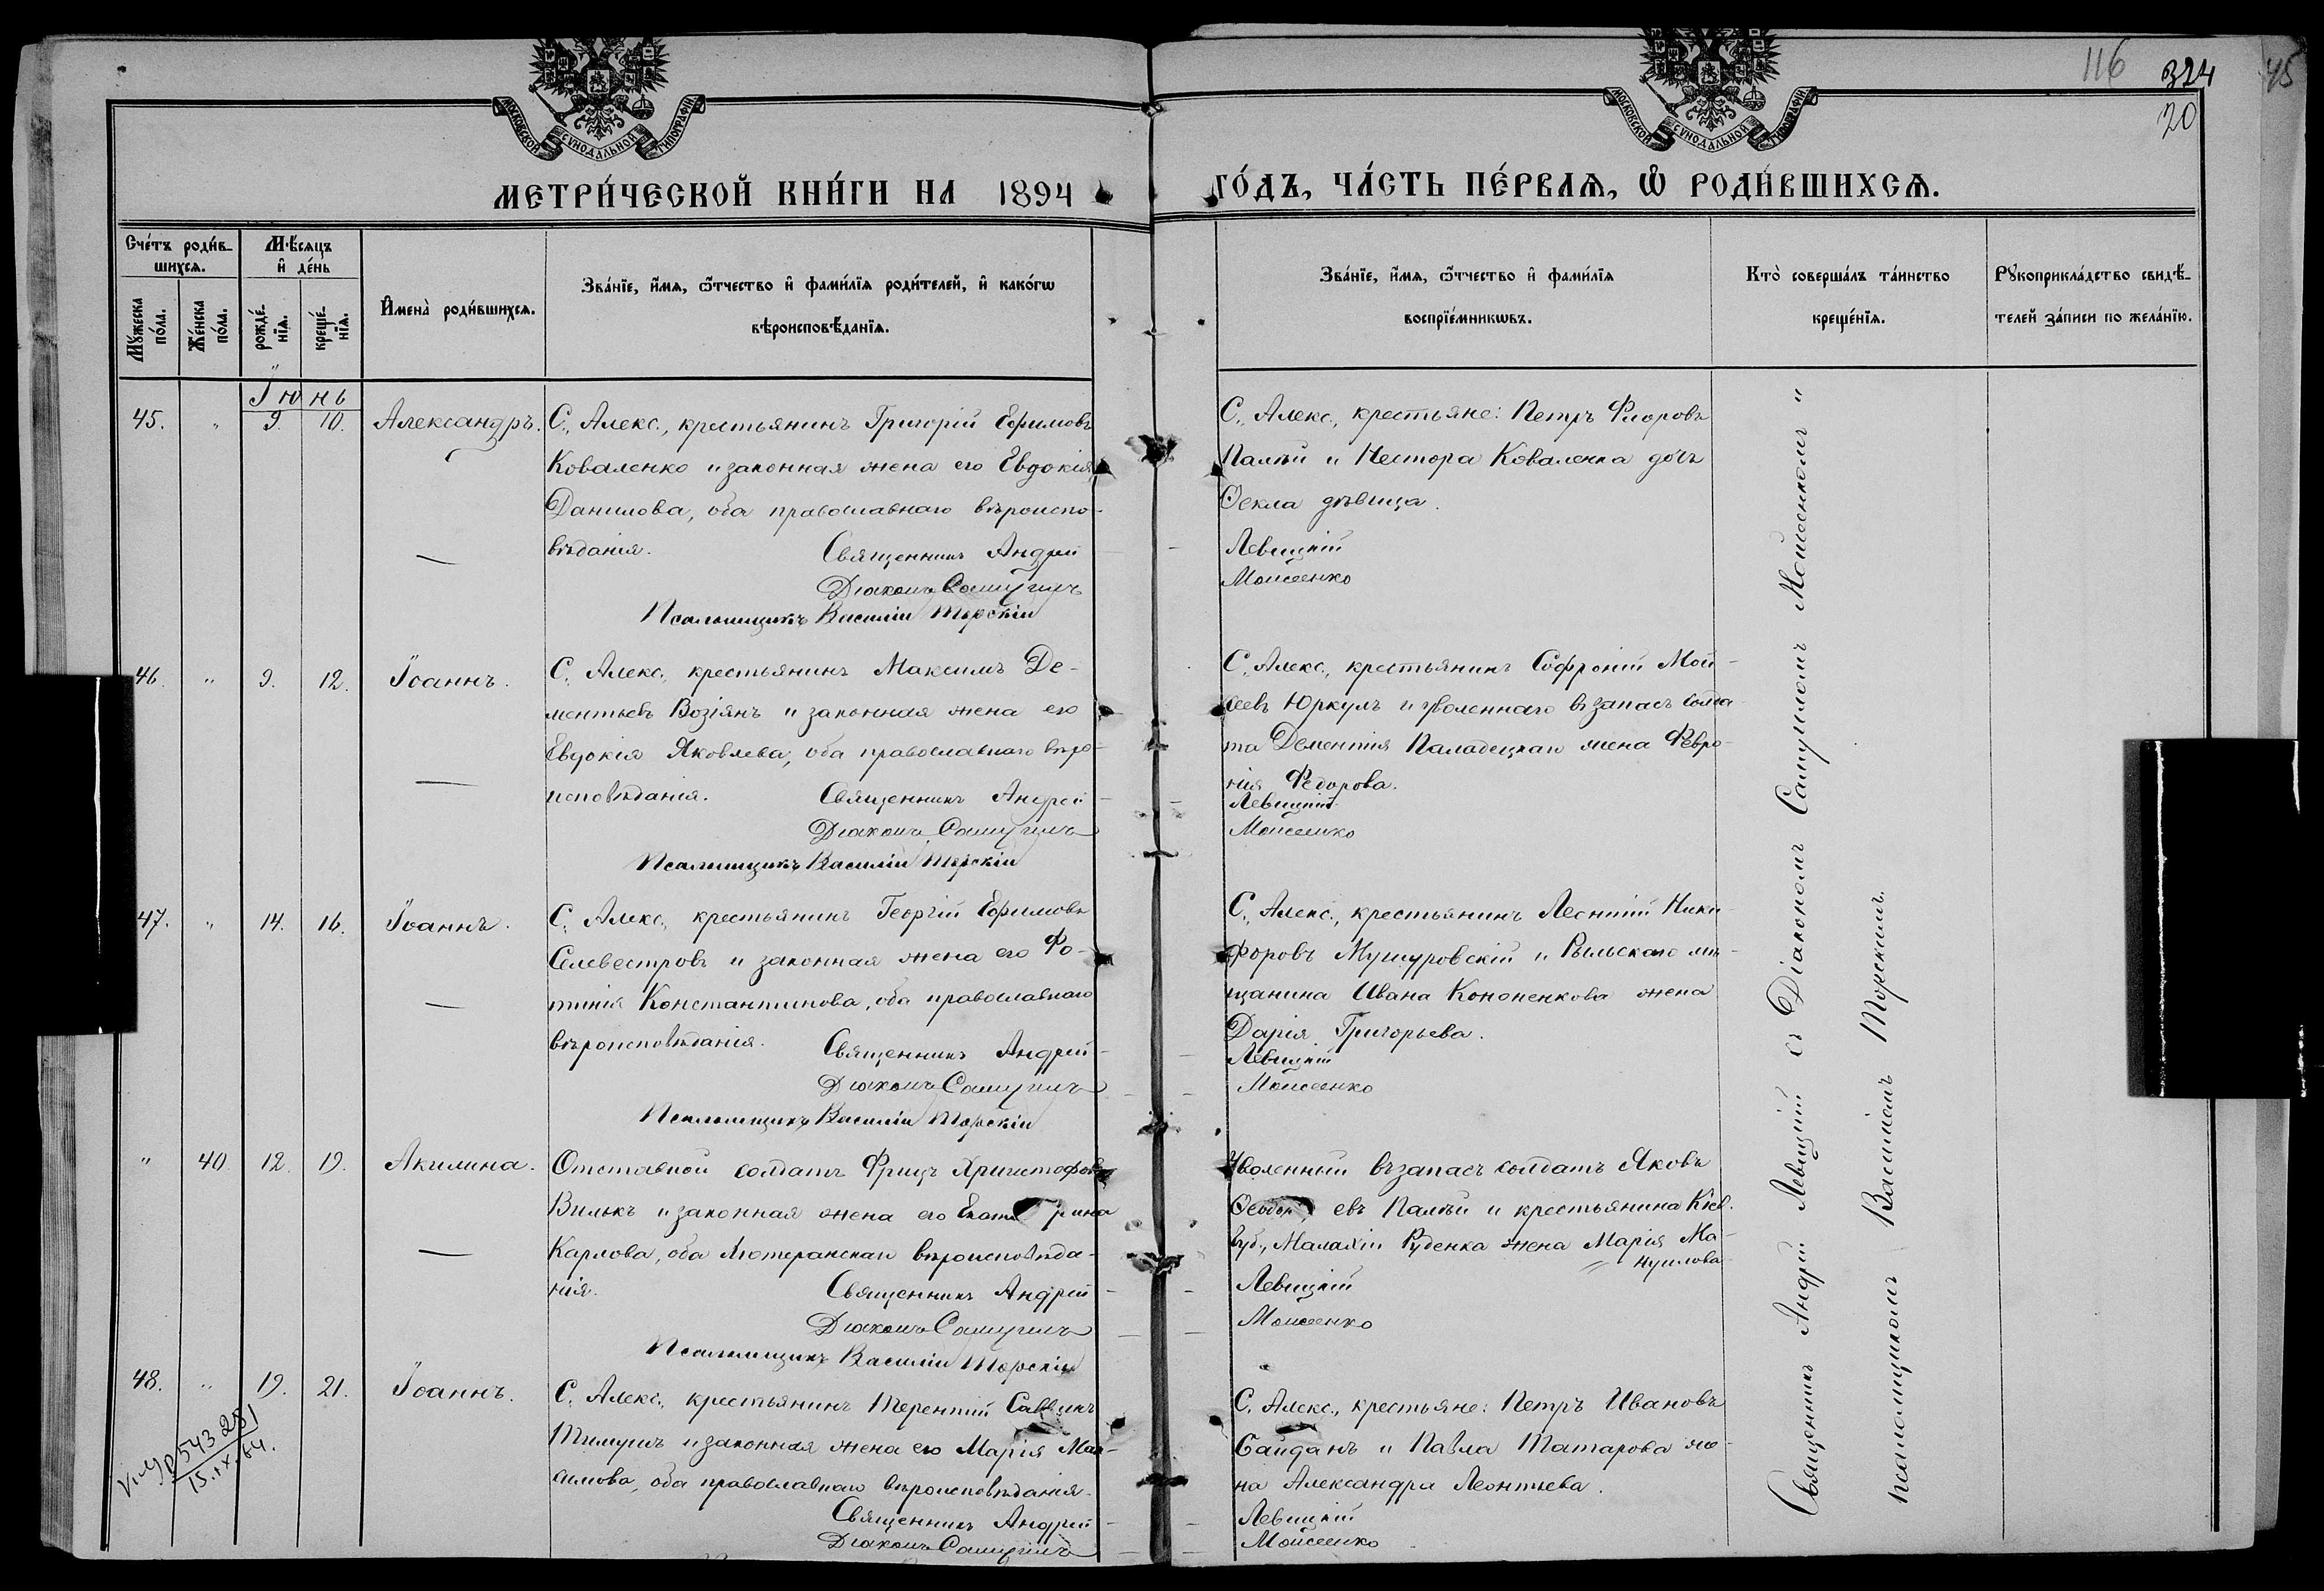 116 324 45
20
МОСКОВСКОЙ СѴНОДАЛЬНОЙ ТИПОГРАФІИ
МОСКОВСКОЙ СѴНОДАЛЬНОЙ ТИПОГРАФІИ
МЕТРИ́ЧЕСКОЙ КНИ́ГИ НА 1894 ГО́ДЪ, ЧА́СТЬ ПЕ́РВАѦ, Ѽ РОДИ́ВШИХСѦ.
Счéтъ роди́в-
шихсѧ.
Мꙋ́жеска по́ла.
Же́нска по́ла.
Мѣ́сѧцъ
и҆ де́нь
рожде́-
нїѧ.
креще́-
нїѧ.
И҆мена̀ роди́вшихсѧ.
Зва́нїе, и҆́мѧ, ѻ҆́тчество и҆ фами́лїѧ роди́телей, и҆ како́гѡ
вѣроисповѣ́данїѧ.
Зва́нїе, и҆́мѧ, ѻ҆́тчество и҆ фами́лїѧ
воспрїе́мникѡвъ.
Кто̀ соверша́лъ та́инство
креще́нїѧ.
Рꙋкоприкла́дство свидѣ́-
телей за́писи по жела́нїю.
Іюнь
45. " 9. 10. Александръ.
С. Алекс., крестьянинъ Григорій Ефимовъ
Коваленко и законная жена его Евдокія
Данилова, оба православнаго вѣроиспо-
вѣданія. Священникъ Андрей
Діаконъ Самуилъ
Псаломщикъ Василій Торскій
С. Алекс., крестьяне: Петръ Флоровъ
Палѣй и Нестора Коваленка дочь
Ѳекла дѣвица.
Левицкій
Моисеенко
46. " 9. 12. Іоаннъ.
С. Алекс., крестьянинъ Максимъ Де-
ментьевъ Возіянъ и законная жена его
Евдокія Яковлева, оба православнаго вѣро-
исповѣданія. Священникъ Андрей
Діаконъ Самуилъ
Псаломщикъ Василій Торскій
С. Алекс., крестьянинъ Софроній Мой-
сеевъ Юркулъ и уволеннаго въ запасъ солда-
та Дементія Паладецкаго жена Февро-
нія Федорова.
Левицкій
Моисеенко
47. " 14. 16. Іоаннъ.
С. Алекс., крестьянинъ Георгій Ефимовъ
Селевестровъ и законная жена его Фо-
тинія Константинова, оба православнаго
вѣроисповѣданія. Священникъ Андрей
Діаконъ Самуилъ
Псаломщикъ Василій Торскій
С. Алекс., крестьянинъ Леонтій Ники-
форовъ Мушуровскій и Рыльскаго мѣ-
щанина Ивана Кононенкова жена
Дарія Григорьева.
Левицкій
Моисеенко
" 40. 12. 19. Акилина.
Отставной солдатъ Фрицъ Христофовъ
Вилькъ и законная жена его Екатерина
Карлова, оба лютеранскаго вѣроисповѣда-
нія. Священникъ Андрей
Діаконъ Самуилъ
Псаломщикъ Василій Торскій
Уволенный въ запасъ солдатъ Яковъ
евъ Палѣй и крестьянина Кіев.
губ., Малахія Руденка жена Марія Ма-
нуилова
Левицкій
Моисеенко
48. " 19. 21. Іоаннъ.
С. Алекс., крестьянинъ Терентій Саввинъ
Тимушъ и законная жена его Марія Мак-
симова, оба православнаго вѣроисповѣданія.
Священникъ Андрей
Діаконъ Самуилъ
С. Алекс., крестьяне: Петръ Ивановъ
Сайданъ и Павла Татарова же-
на Александра Леонтьева.
Левицкій
Моисеенко
543281
15.IX.64.
Священникъ Андрей Левицкій съ Діакономъ Самуиломъ Моисеенкомъ и
псаломщикомъ Василіемъ Торскимъ.